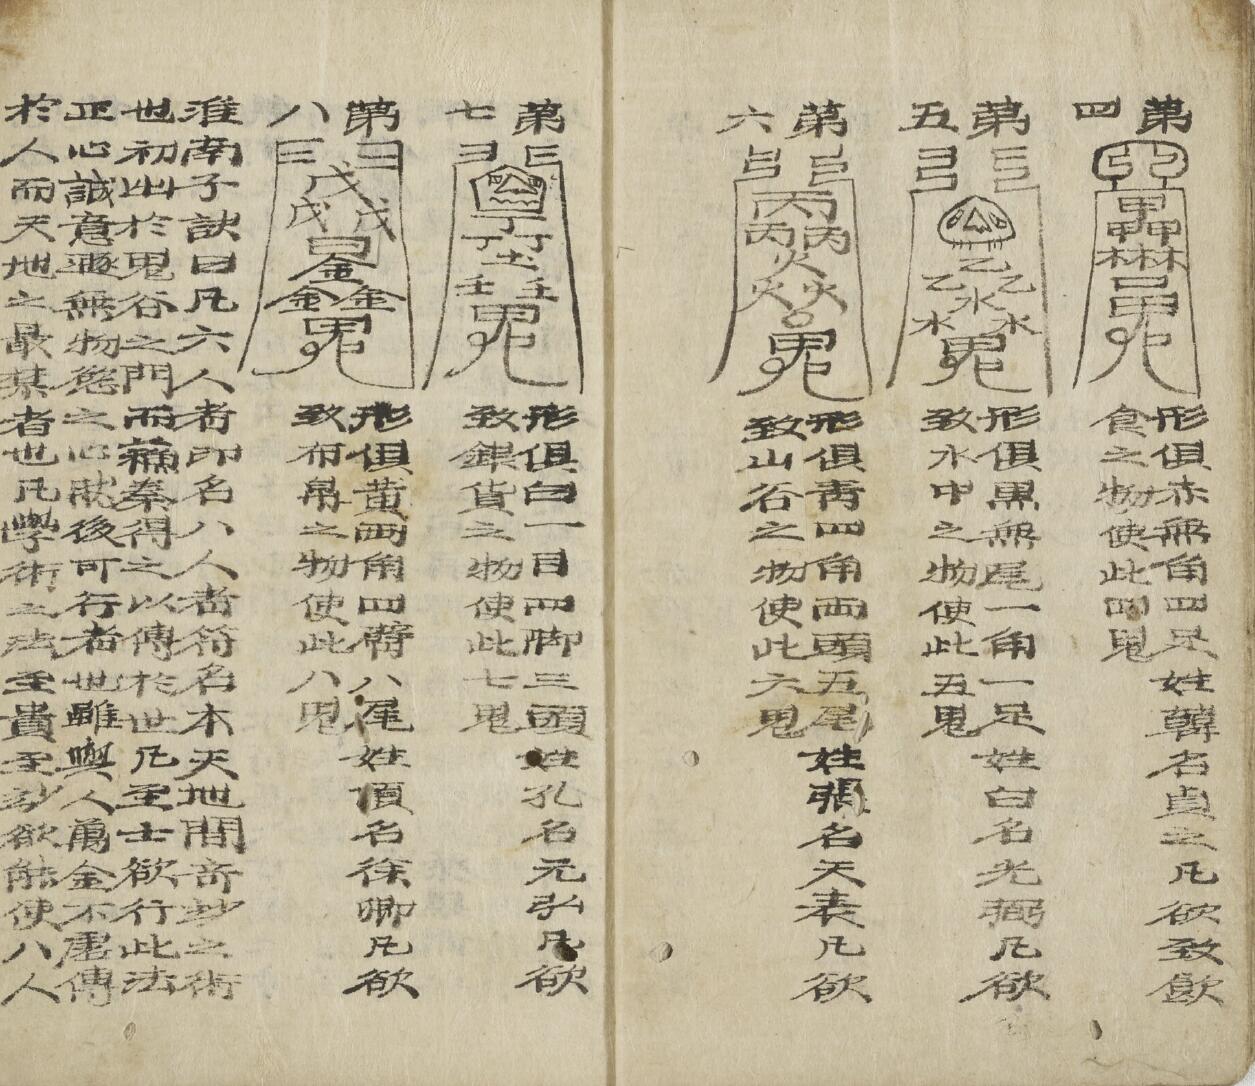 第 形俱赤無角四足姓韓名貞之凡欲致飮
四 食之物使此四鬼
第 形俱黑無尾一角一足姓白名光弼凡欲
五 致水中之物使此五鬼
第 形俱靑四角兩頭五尾姓張名天表凡欲
六 致山石之物使此六鬼
第 形俱白一目四脚三頭姓孔名元弘凡欲
七 致銀貨之物使此七鬼
第 形俱黃兩角四臂八尾姓項名徐卿凡欲
八 致布帛之物使此八鬼
淮南子訣曰凡六人者卽名八人者符名本天地間奇妙之術
也初出於鬼谷之門而蘇秦得之以傳於世凡至士欲行此法
正心誠意無物慾之心然後可行者也雖與人萬金不虛傳
於人而天地之最者也凡學術之法至貴至妙欲能使八人